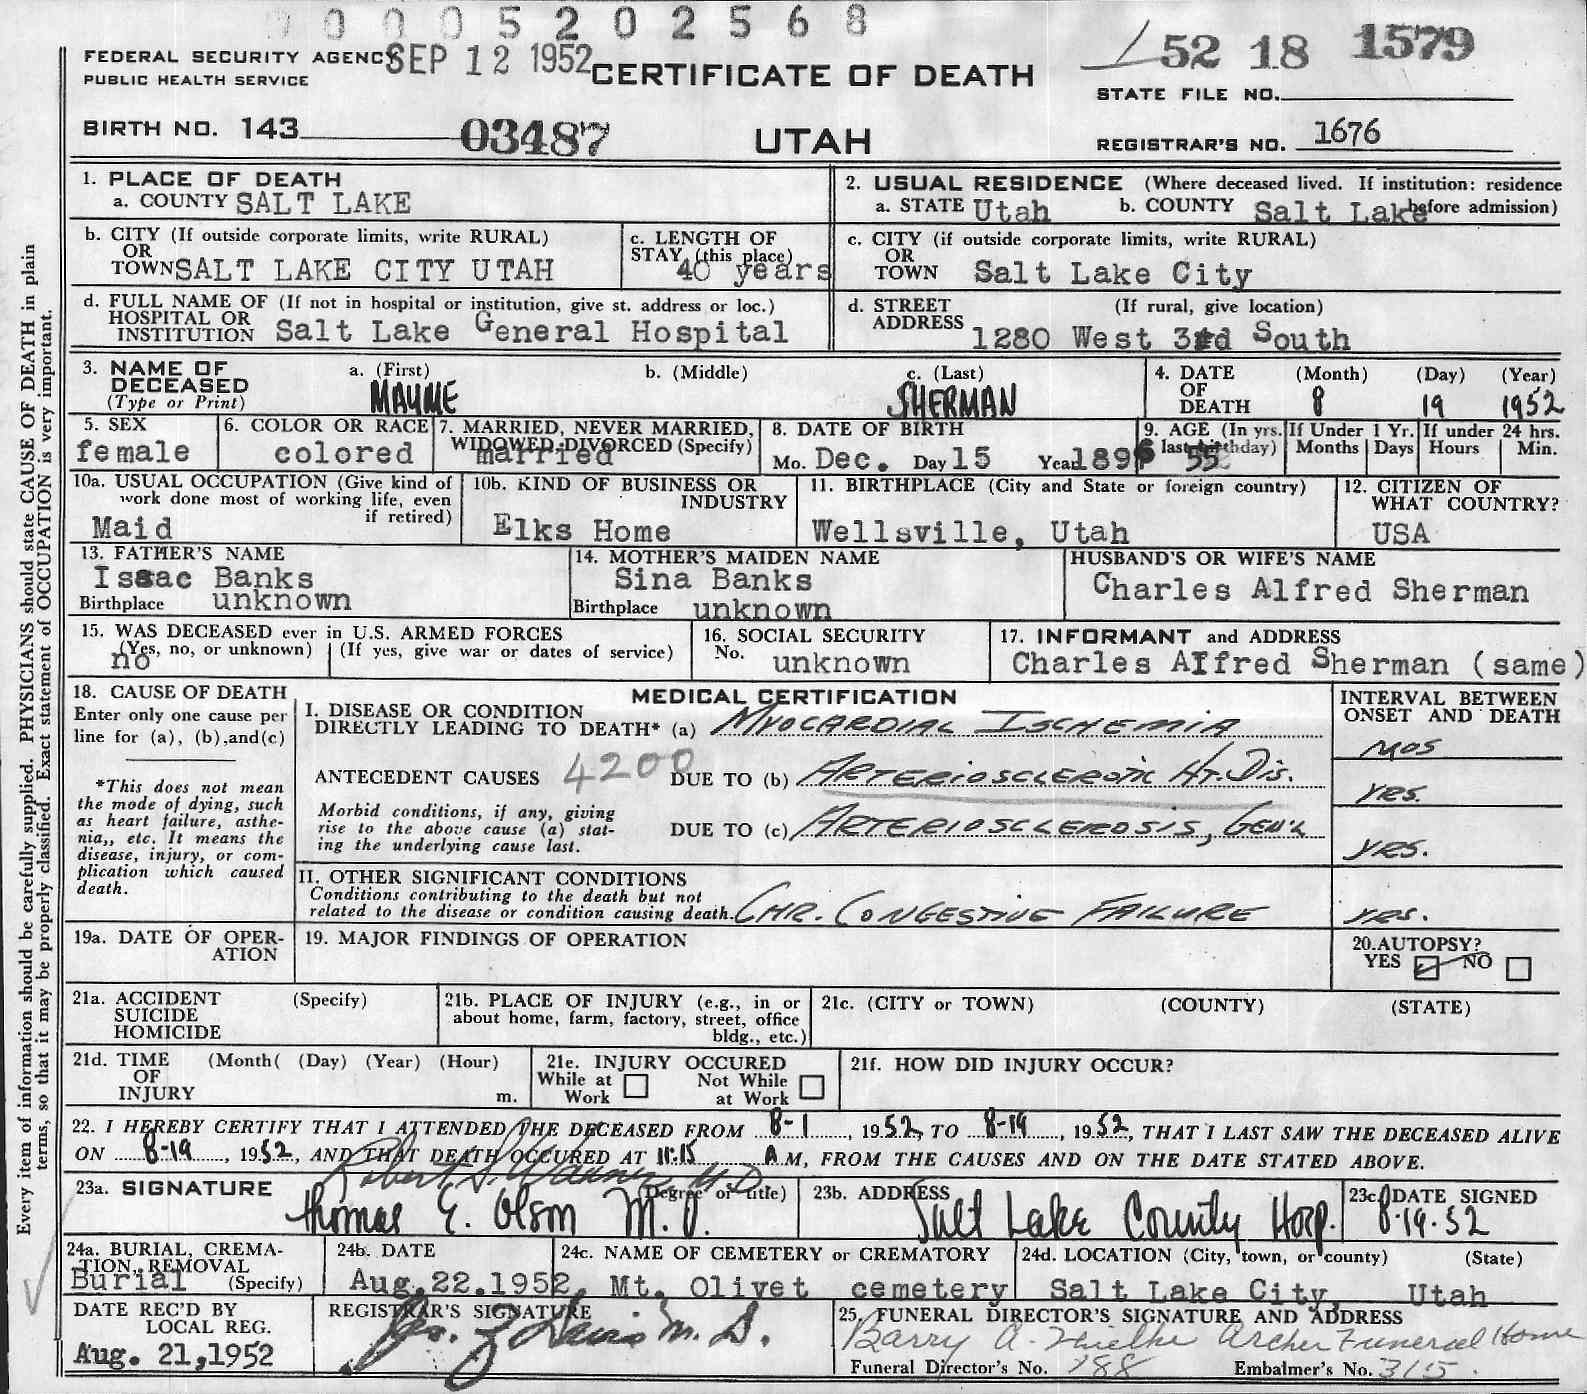 0 0 0 5 2 0 2 5 6 8
FEDERAL SECURITY AGENCY SEP 12 1952
PUBLIC HEALTH SERVICE
CERTIFICATE OF DEATH
52 18 1579
STATE FILE NO.
BIRTH NO. 143 03487
UTAH
REGISTRAR'S NO. 1676
1. PLACE OF DEATH
a. COUNTY SALT LAKE
2. USUAL RESIDENCE (Where deceased lived. If institution: residence before admission)
a. STATE Utah b. COUNTY Salt Lake
b. CITY (If outside corporate limits, write RURAL)
OR
TOWN SALT LAKE CITY UTAH
c. LENGTH OF
STAY (this place)
40 years
c. CITY (if outside corporate limits, write RURAL)
OR
TOWN Salt Lake City
d. FULL NAME OF (If not in hospital or institution, give st. address or loc.)
HOSPITAL OR
INSTITUTION Salt Lake General Hospital
d. STREET (If rural, give location)
ADDRESS 1280 West 3rd South
3. NAME OF
DECEASED
(Type or Print)
a. (First) b. (Middle) c. (Last)
MAYME SHERMAN
4. DATE (Month) (Day) (Year)
OF
DEATH 8 19 1952
5. SEX
female
6. COLOR OR RACE
colored
7. MARRIED, NEVER MARRIED,
WIDOWED, DIVORCED (Specify)
married
8. DATE OF BIRTH
Mo. Dec. Day 15 Year 1896
9. AGE (In yrs. last birthday)
55
If Under 1 Yr.
Months Days
If under 24 hrs.
Hours Min.
10a. USUAL OCCUPATION (Give kind of
work done most of working life, even
if retired)
Maid
10b. KIND OF BUSINESS OR
INDUSTRY
Elks Home
11. BIRTHPLACE (City and State or foreign country)
Wellsville, Utah
12. CITIZEN OF
WHAT COUNTRY?
USA
13. FATHER'S NAME
Issac Banks
Birthplace unknown
14. MOTHER'S MAIDEN NAME
Sina Banks
Birthplace unknown
HUSBAND'S OR WIFE'S NAME
Charles Alfred Sherman
15. WAS DECEASED ever in U.S. ARMED FORCES
(Yes, no, or unknown) (If yes, give war or dates of service)
no
16. SOCIAL SECURITY
No. unknown
17. INFORMANT and ADDRESS
Charles Alfred Sherman (same)
18. CAUSE OF DEATH
Enter only one cause per
line for (a), (b),and(c)
*This does not mean
the mode of dying, such
as heart failure, asthe-
nia,, etc. It means the
disease, injury, or com-
plication which caused
death.
MEDICAL CERTIFICATION
INTERVAL BETWEEN
ONSET AND DEATH
I. DISEASE OR CONDITION
DIRECTLY LEADING TO DEATH* (a) MYOCARDIAL ISCHEMIA
MOS
ANTECEDENT CAUSES 4200 DUE TO (b) ARTERIOSCLEROTIC HT. DIS.
YRS.
Morbid conditions, if any, giving
rise to the above cause (a) stat-
ing the underlying cause last.
DUE TO (c) ARTERIOSCLEROSIS, GEN'L
YRS.
II. OTHER SIGNIFICANT CONDITIONS
Conditions contributing to the death but not
related to the disease or condition causing death. CHR. CONGESTIVE FAILURE
YRS.
19a. DATE OF OPER-
ATION
19. MAJOR FINDINGS OF OPERATION
20. AUTOPSY?
YES NO
21a. ACCIDENT (Specify)
SUICIDE
HOMICIDE
21b. PLACE OF INJURY (e.g., in or
about home, farm, factory, street, office
bldg., etc.)
21c. (CITY or TOWN) (COUNTY) (STATE)
21d. TIME (Month( (Day) (Year) (Hour)
OF
INJURY m.
21e. INJURY OCCURED
While at Work Not While at Work
21f. HOW DID INJURY OCCUR?
22. I HEREBY CERTIFY THAT I ATTENDED THE DECEASED FROM 8-1, 1952, TO 8-19, 1952, THAT I LAST SAW THE DECEASED ALIVE
ON 8-19, 1952, AND THAT DEATH OCCURED AT 11:15 A M, FROM THE CAUSES AND ON THE DATE STATED ABOVE.
Robert S. M.D.
23a. SIGNATURE (Degree or title)
Thomas E. Olson M.D.
23b. ADDRESS
Salt Lake County Hosp.
23c. DATE SIGNED
8-19-52
24a. BURIAL, CREMA-
TION, REMOVAL
(Specify)
Burial
24b. DATE
Aug. 22. 1952
24c. NAME OF CEMETERY or CREMATORY
Mt. Olivet cemetery
24d. LOCATION (City, town, or county) (State)
Salt Lake City, Utah
DATE REC'D BY
LOCAL REG.
Aug. 21,1952
REGISTRAR'S SIGNATURE
M. D.
25. FUNERAL DIRECTOR'S SIGNATURE AND ADDRESS
Barry A. Archer Funeral Home
Funeral Director's No. 188 Embalmer's No. 315
Every item of information should be carefully supplied. PHYSICIANS should state CAUSE OF DEATH in plain
terms, so that it may be properly classified. Exact statement of OCCUPATION is very important.